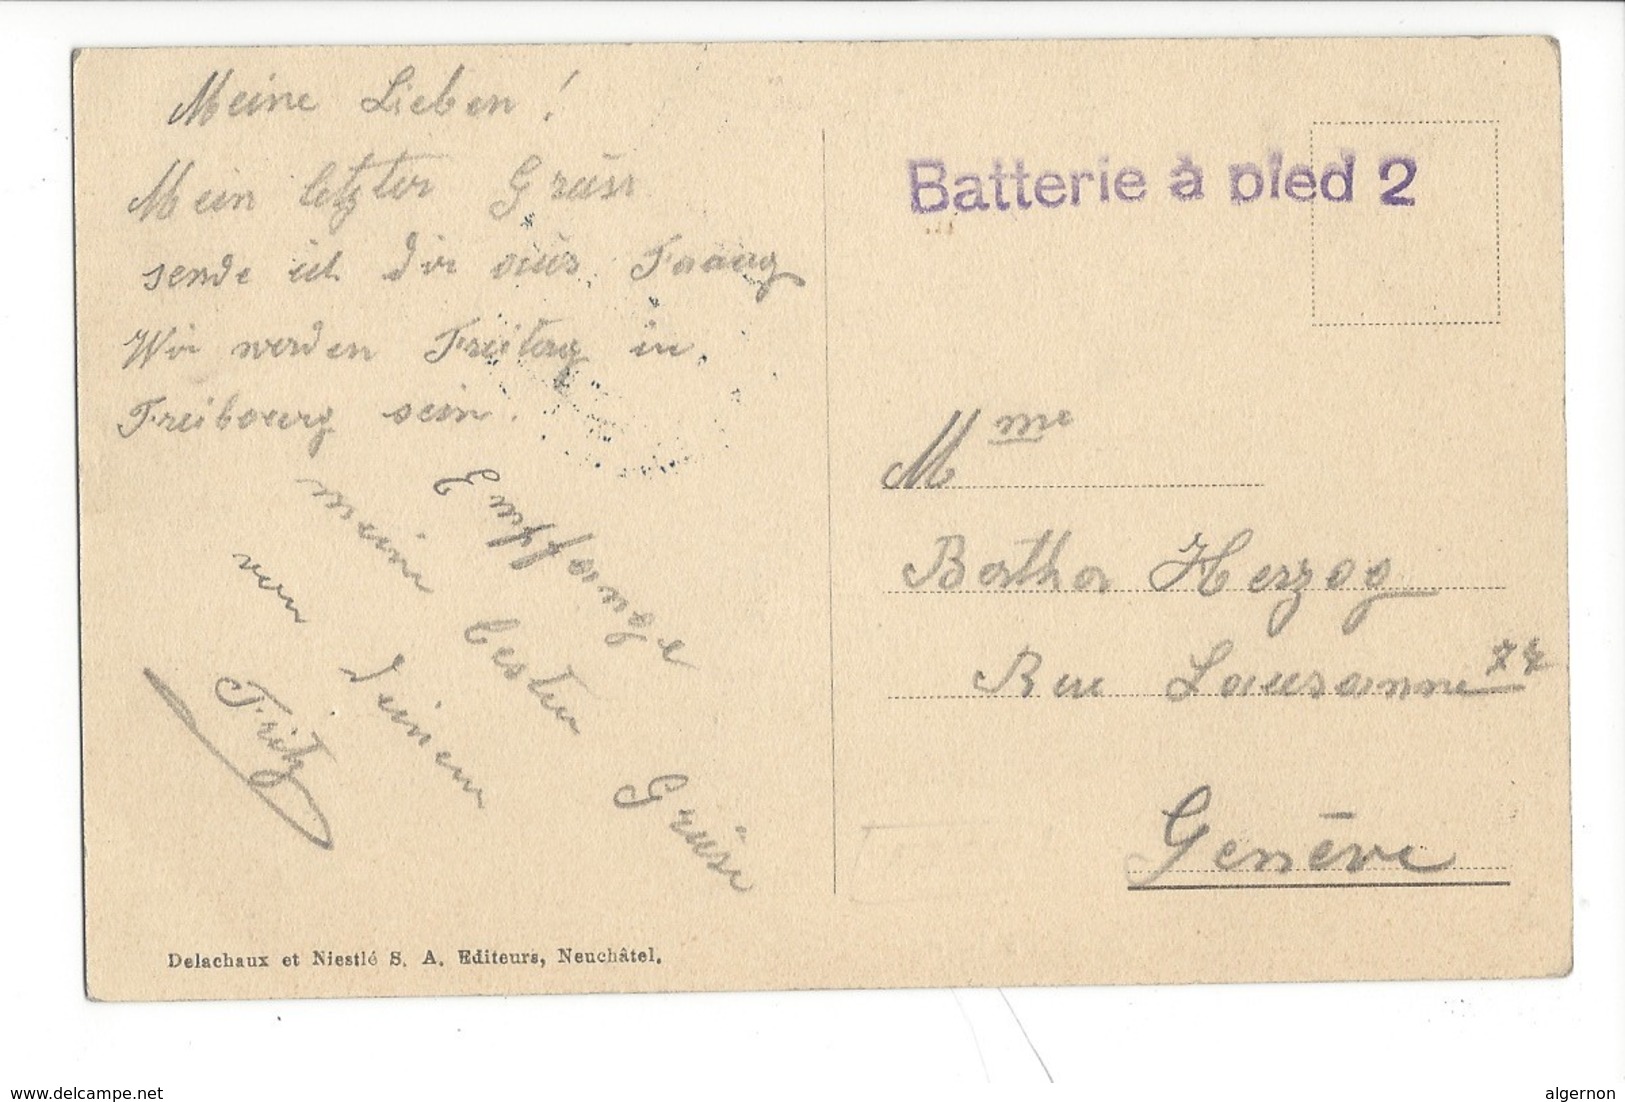 Meine Lieben!
Mein letzter Grüss
sende ich dir aüs
Wir werden Freitag in
Freibourg sein.
Empfange
mein besten Grüss
von Deinem
Fritz
Batterie à pied 2
Mme
Bertha Herzog
Rue Lausanne
Genève
Delachaux et Niestlé S. A. Editeurs, Neuchâtel.
www.delcampe.net
algernon